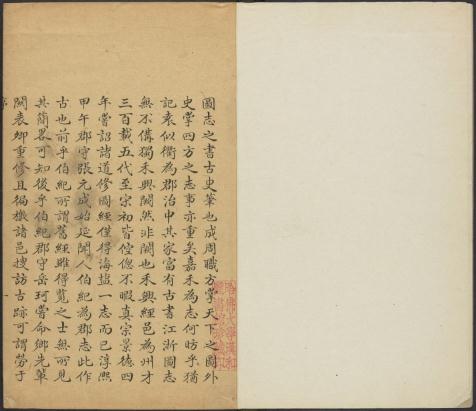 圖志之書古史筆也成周職方掌天下之圖外
史掌四方之志事亦重矣嘉禾為志何昉乎猶
記表似衢為郡治中其家富有古書江浙圖志
無不備獨禾興闕然非闕也禾興經邑為州才
三百載五代至宋初皆倥傯不暇真宗景德四
年嘗詔諸道修圖經僅得海鹽一志而已淳熙
甲午郡守張元成始延聞人伯紀為郡志此作
古也前乎伯紀所謂舊經雖得覽之士無所見
其簡畧可知後乎伯紀郡守岳珂嘗命鄉先輩
關表卿重修且徧檄諸邑搜訪古跡可謂勞于
序